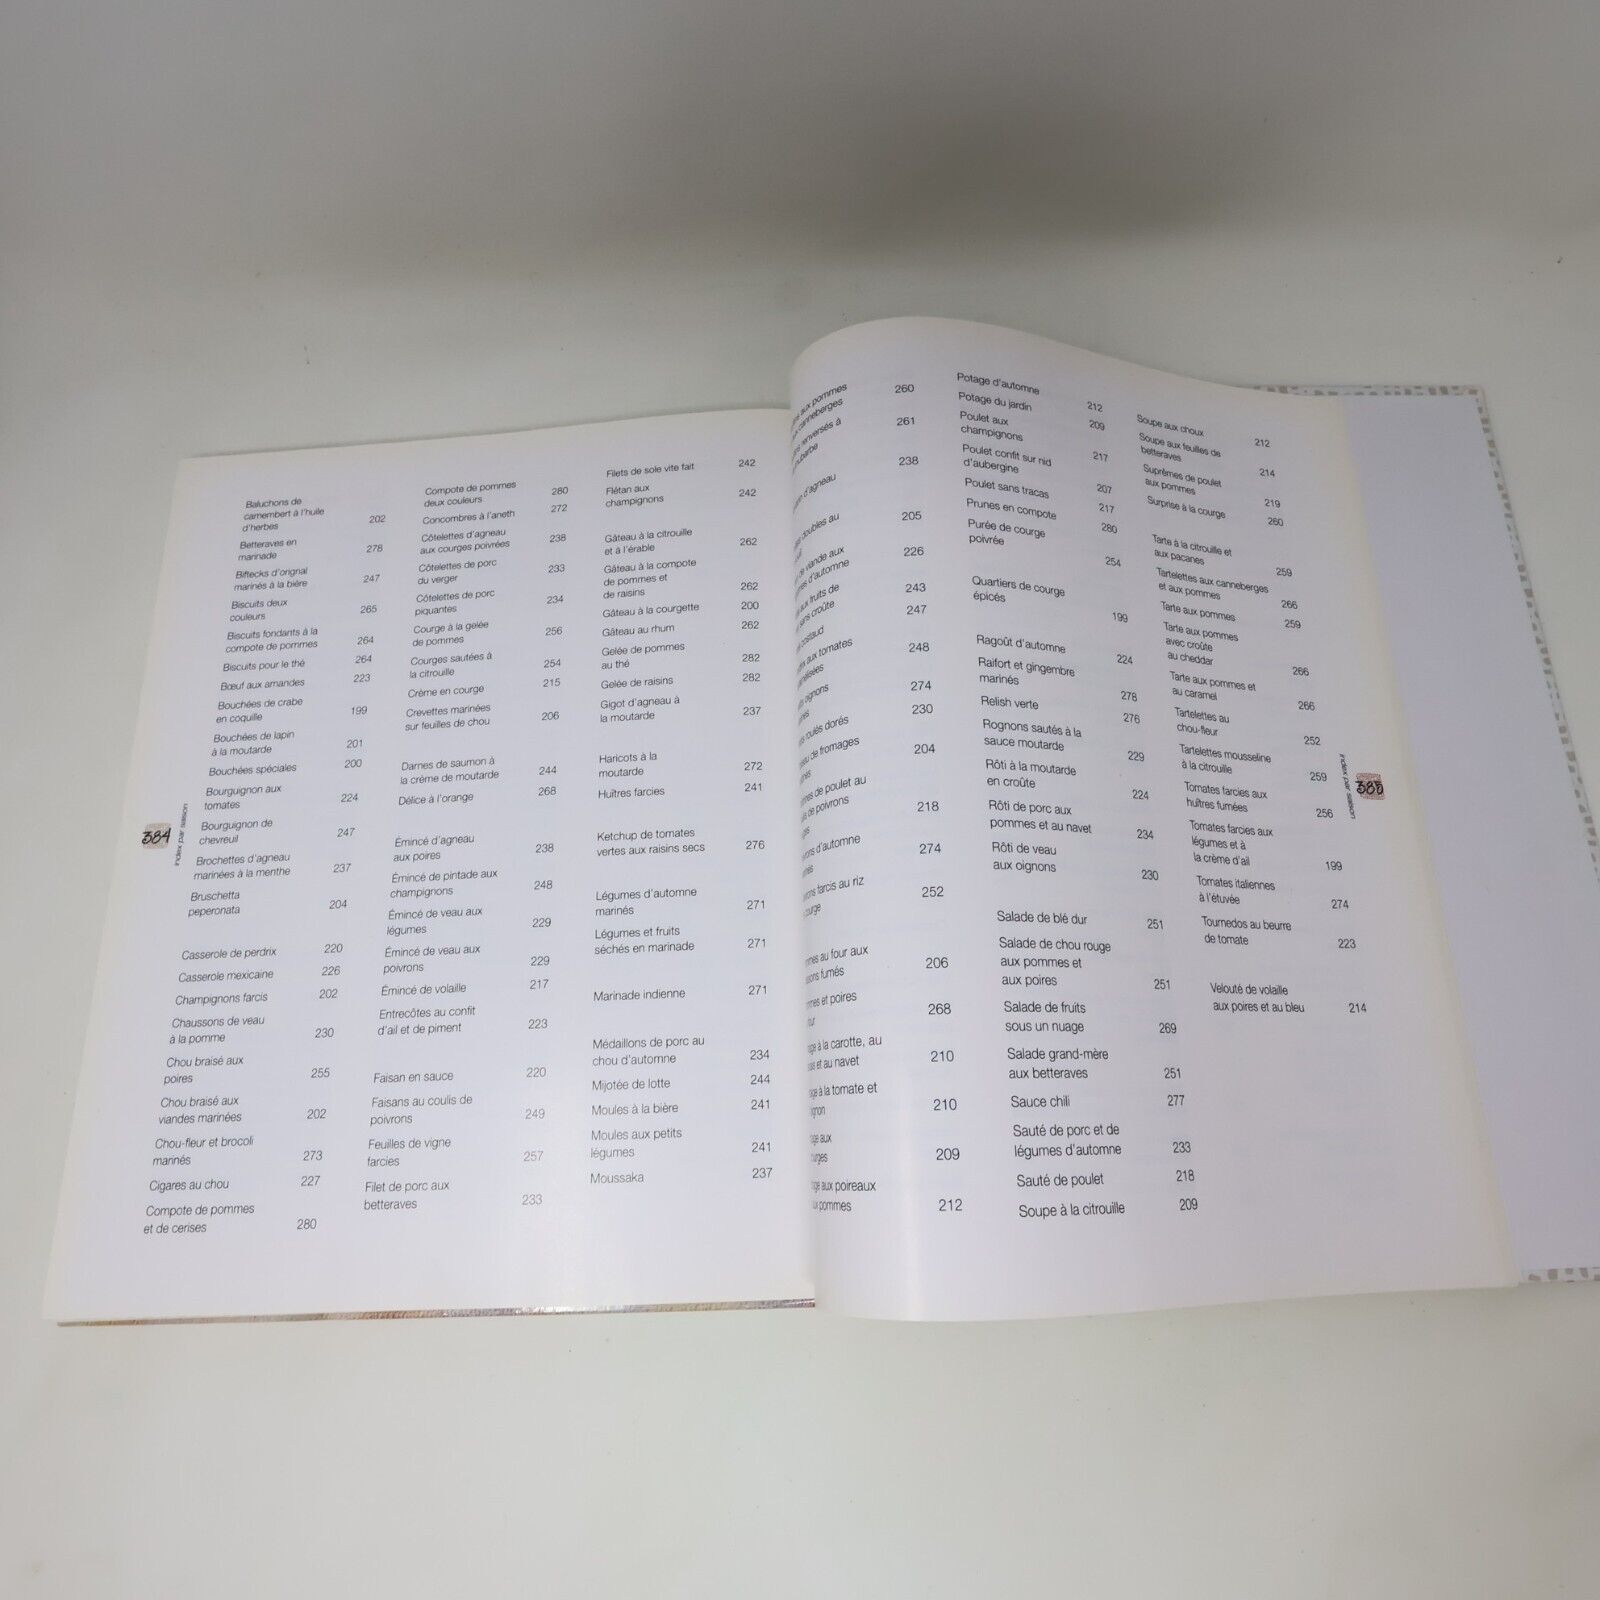 Baluchons de
camembert à l'huile
d'herbes 202
Betteraves en
marinade 278
Biftecks d'orignal
marinés à la bière 247
Biscuits deux
couleurs 265
Biscuits fondants à la
compote de pommes 264
Biscuits pour le thé 264
Bœuf aux amandes 223
Bouchées de crabe
en coquille 199
Bouchées de lapin
à la moutarde 201
Bouchées spéciales 200
Bourguignon aux
tomates 224
Bourguignon de
chevreuil 247
Brochettes d'agneau
marinées à la menthe 237
Bruschetta
peperonata 204
Casserole de perdrix 220
Casserole mexicaine 226
Champignons farcis 202
Chaussons de veau
à la pomme 230
Chou braisé aux
poires 255
Chou braisé aux
viandes marinées 202
Chou-fleur et brocoli
marinés 273
Cigares au chou 227
Compote de pommes
et de cerises 280
Compote de pommes
deux couleurs 280
Concombres à l'aneth 272
Côtelettes d'agneau
aux courges poivrées 238
Côtelettes de porc
du verger 233
Côtelettes de porc
piquantes 234
Courge à la gelée
de pommes 256
Courges sautées à
la citrouille 254
Crème en courge 215
Crevettes marinées
sur feuilles de chou 206
Darnes de saumon à
la crème de moutarde 244
Délice à l'orange 268
Émincé d'agneau
aux poires 238
Émincé de pintade aux
champignons 248
Émincé de veau aux
légumes 229
Émincé de veau aux
poivrons 229
Émincé de volaille 217
Entrecôtes au confit
d'ail et de piment 223
Faisan en sauce 220
Faisans au coulis de
poivrons 249
Feuilles de vigne
farcies 257
Filet de porc aux
betteraves 233
Filets de sole vite fait 242
Flétan aux
champignons 242
Gâteau à la citrouille
et à l'érable 262
Gâteau à la compote
de pommes et
de raisins 262
Gâteau à la courgette 200
Gâteau au rhum 262
Gelée de pommes
au thé 282
Gelée de raisins 282
Gigot d'agneau à
la moutarde 237
Haricots à la
moutarde 272
Huîtres farcies 241
Ketchup de tomates
vertes aux raisins secs 276
Légumes d'automne
marinés 271
Légumes et fruits
séchés en marinade 271
Marinade indienne 271
Médaillons de porc au
chou d'automne 234
Mijotée de lotte 244
Moules à la bière 241
Moules aux petits
légumes 241
Moussaka 237
384
index par saison
aux pommes
canneberges 260
renversés à
261
d'agneau
238
doubles au
205
de viande aux
d'automne 226
aux fruits de
sans croûte 243
247
aux tomates
248
oignons
274
roulés dorés 230
de fromages
204
de poulet au
de poivrons
218
d'automne
274
farcis au riz
courge 252
au four aux
fumés 206
et poires
268
à la carotte, au
et au navet 210
à la tomate et
210
aux
209
aux poireaux
pommes 212
Potage d'automne 212
Potage du jardin 209
Poulet aux
champignons 217
Poulet confit sur nid
d'aubergine 207
Poulet sans tracas 217
Prunes en compote 280
Purée de courge
poivrée 254
Quartiers de courge
épicés 199
Ragoût d'automne 224
Raifort et gingembre
marinés 278
Relish verte 276
Rognons sautés à la
sauce moutarde 229
Rôti à la moutarde
en croûte 224
Rôti de porc aux
pommes et au navet 234
Rôti de veau
aux oignons 230
Salade de blé dur 251
Salade de chou rouge
aux pommes et
aux poires 251
Salade de fruits
sous un nuage 269
Salade grand-mère
aux betteraves 251
Sauce chili 277
Sauté de porc et de
légumes d'automne 233
Sauté de poulet 218
Soupe à la citrouille 209
Soupe aux choux 212
Soupe aux feuilles de
betteraves 214
Suprêmes de poulet
aux pommes 219
Surprise à la courge 260
Tarte à la citrouille et
aux pacanes 259
Tartelettes aux canneberges
et aux pommes 266
Tarte aux pommes 259
Tarte aux pommes
avec croûte
au cheddar 266
Tarte aux pommes et
au caramel 266
Tartelettes au
chou-fleur 252
Tartelettes mousseline
à la citrouille 259
Tomates farcies aux
huîtres fumées 256
Tomates farcies aux
légumes et à
la crème d'ail 199
Tomates italiennes
à l'étuvée 274
Tournedos au beurre
de tomate 223
Velouté de volaille
aux poires et au bleu 214
index par saison
385